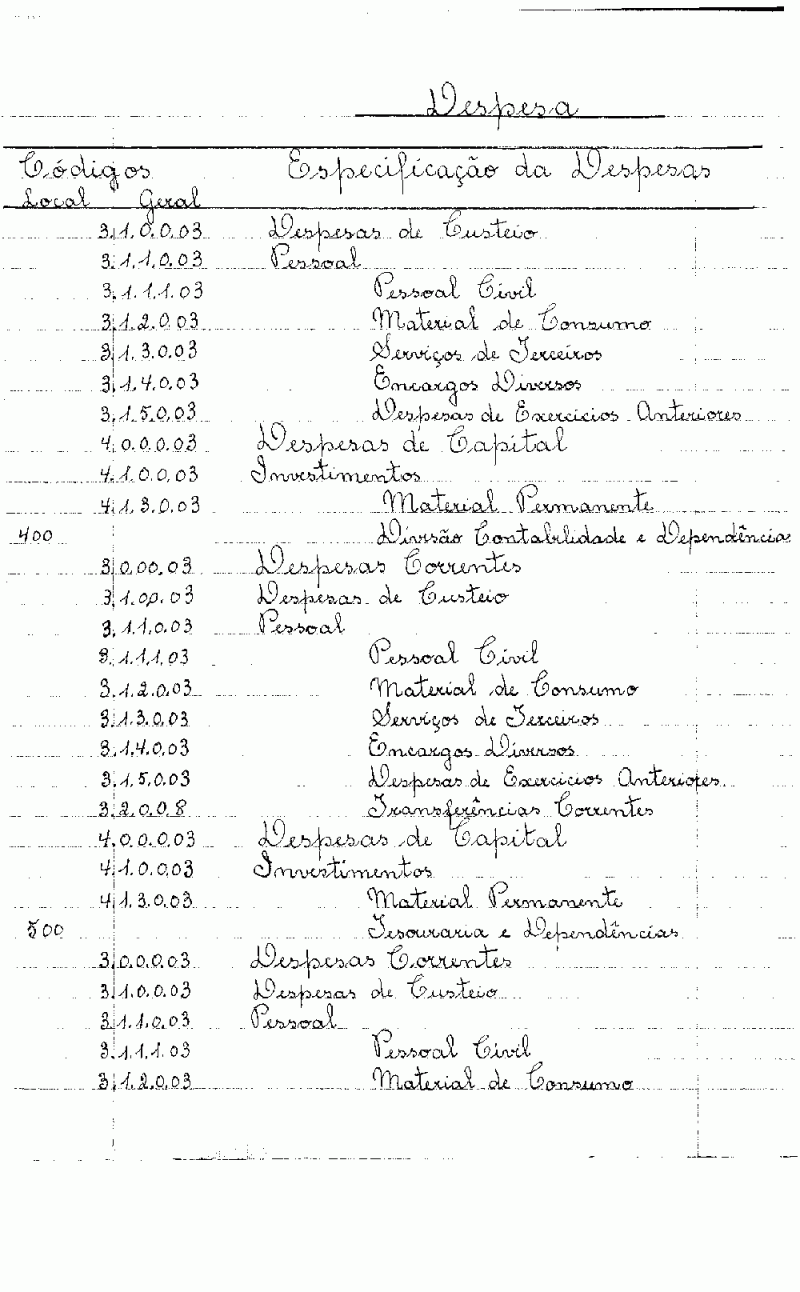 Despesa
Códigos Especificação da Despesas
Local Geral
3.1.0.0.03 Despesas de Custeio
3.1.1.0.03 Pessoal
3.1.1.1.03 Pessoal Civil
3.1.2.0.03 Material de Consumo
3.1.3.0.03 Serviços de Terceiros
3.1.4.0.03 Encargos Diversos
3.1.5.0.03 Despesas de Exercícios Anteriores
4.0.0.0.03 Despesas de Capital
4.1.0.0.03 Investimentos
4.1.3.0.03 Material Permanente
400 Divisão Contabilidade e Dependências
3.0.00.03 Despesas Correntes
3.1.00.03 Despesas de Custeio
3.1.1.0.03 Pessoal
3.1.1.1.03 Pessoal Civil
3.1.2.0.03 Material de Consumo
3.1.3.0.03 Serviços de Terceiros
3.1.4.0.03 Encargos Diversos
3.1.5.0.03 Despesas de Exercícios Anteriores
3.2.0.0.8 Transferências Correntes
4.0.0.0.03 Despesas de Capital
4.1.0.0.03 Investimentos
4.1.3.0.03 Material Permanente
500 Tesouraria e Dependências
3.0.0.0.03 Despesas Correntes
3.1.0.0.03 Despesas de Custeio
3.1.1.0.03 Pessoal
3.1.1.1.03 Pessoal Civil
3.1.2.0.03 Material de Consumo